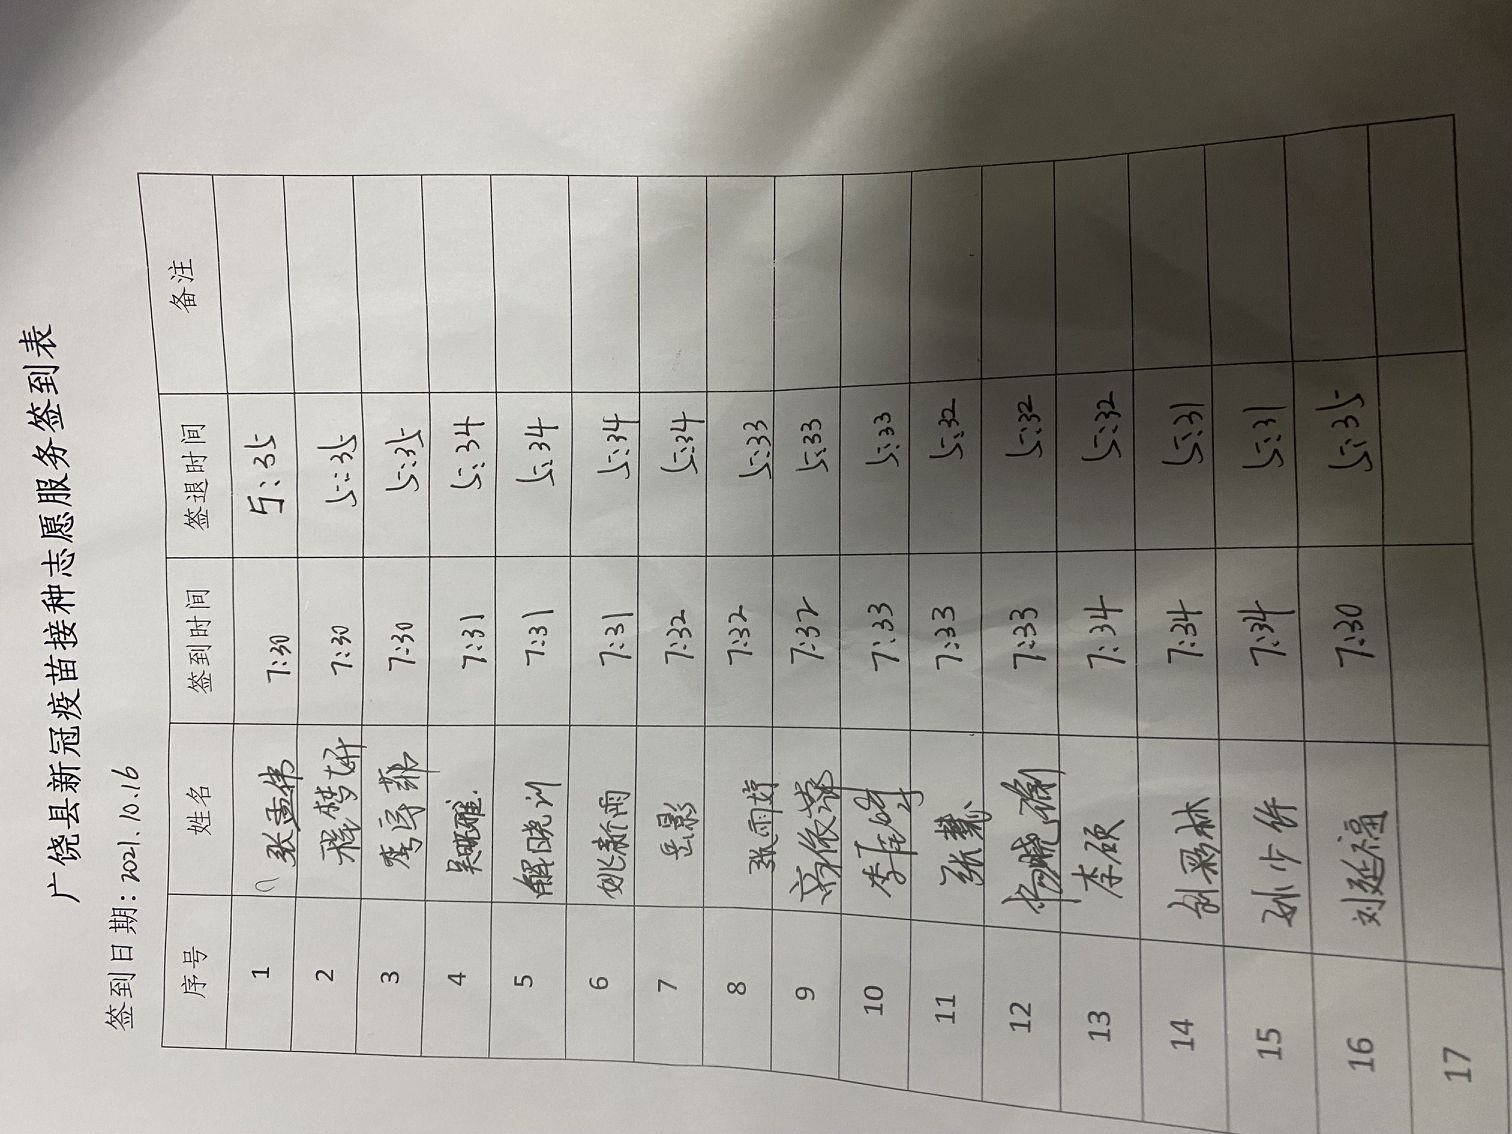 广饶县新冠疫苗接种志愿服务签到表
签到日期:2021.10.16
序号 姓名 签到时间 签退时间 备注
1 张孟伟 7:30 5:35
2 程梦妍 7:30 5:35
3 7:30 5:35
4 吴晓雅. 7:31 5:34
5 解晓汌 7:31 5:34
6 姚新雨 7:31 5:34
7 岳影 7:32 5:34
8 张雨婷 7:32 5:33
9 7:32 5:33
10 7:33 5:33
11 张慧 7:33 5:32
12 7:33 5:32
13 李硕 7:34 5:32
14 刘彩林 7:34 5:31
15 7:34 5:31
16 刘延福 7:30 5:35
17